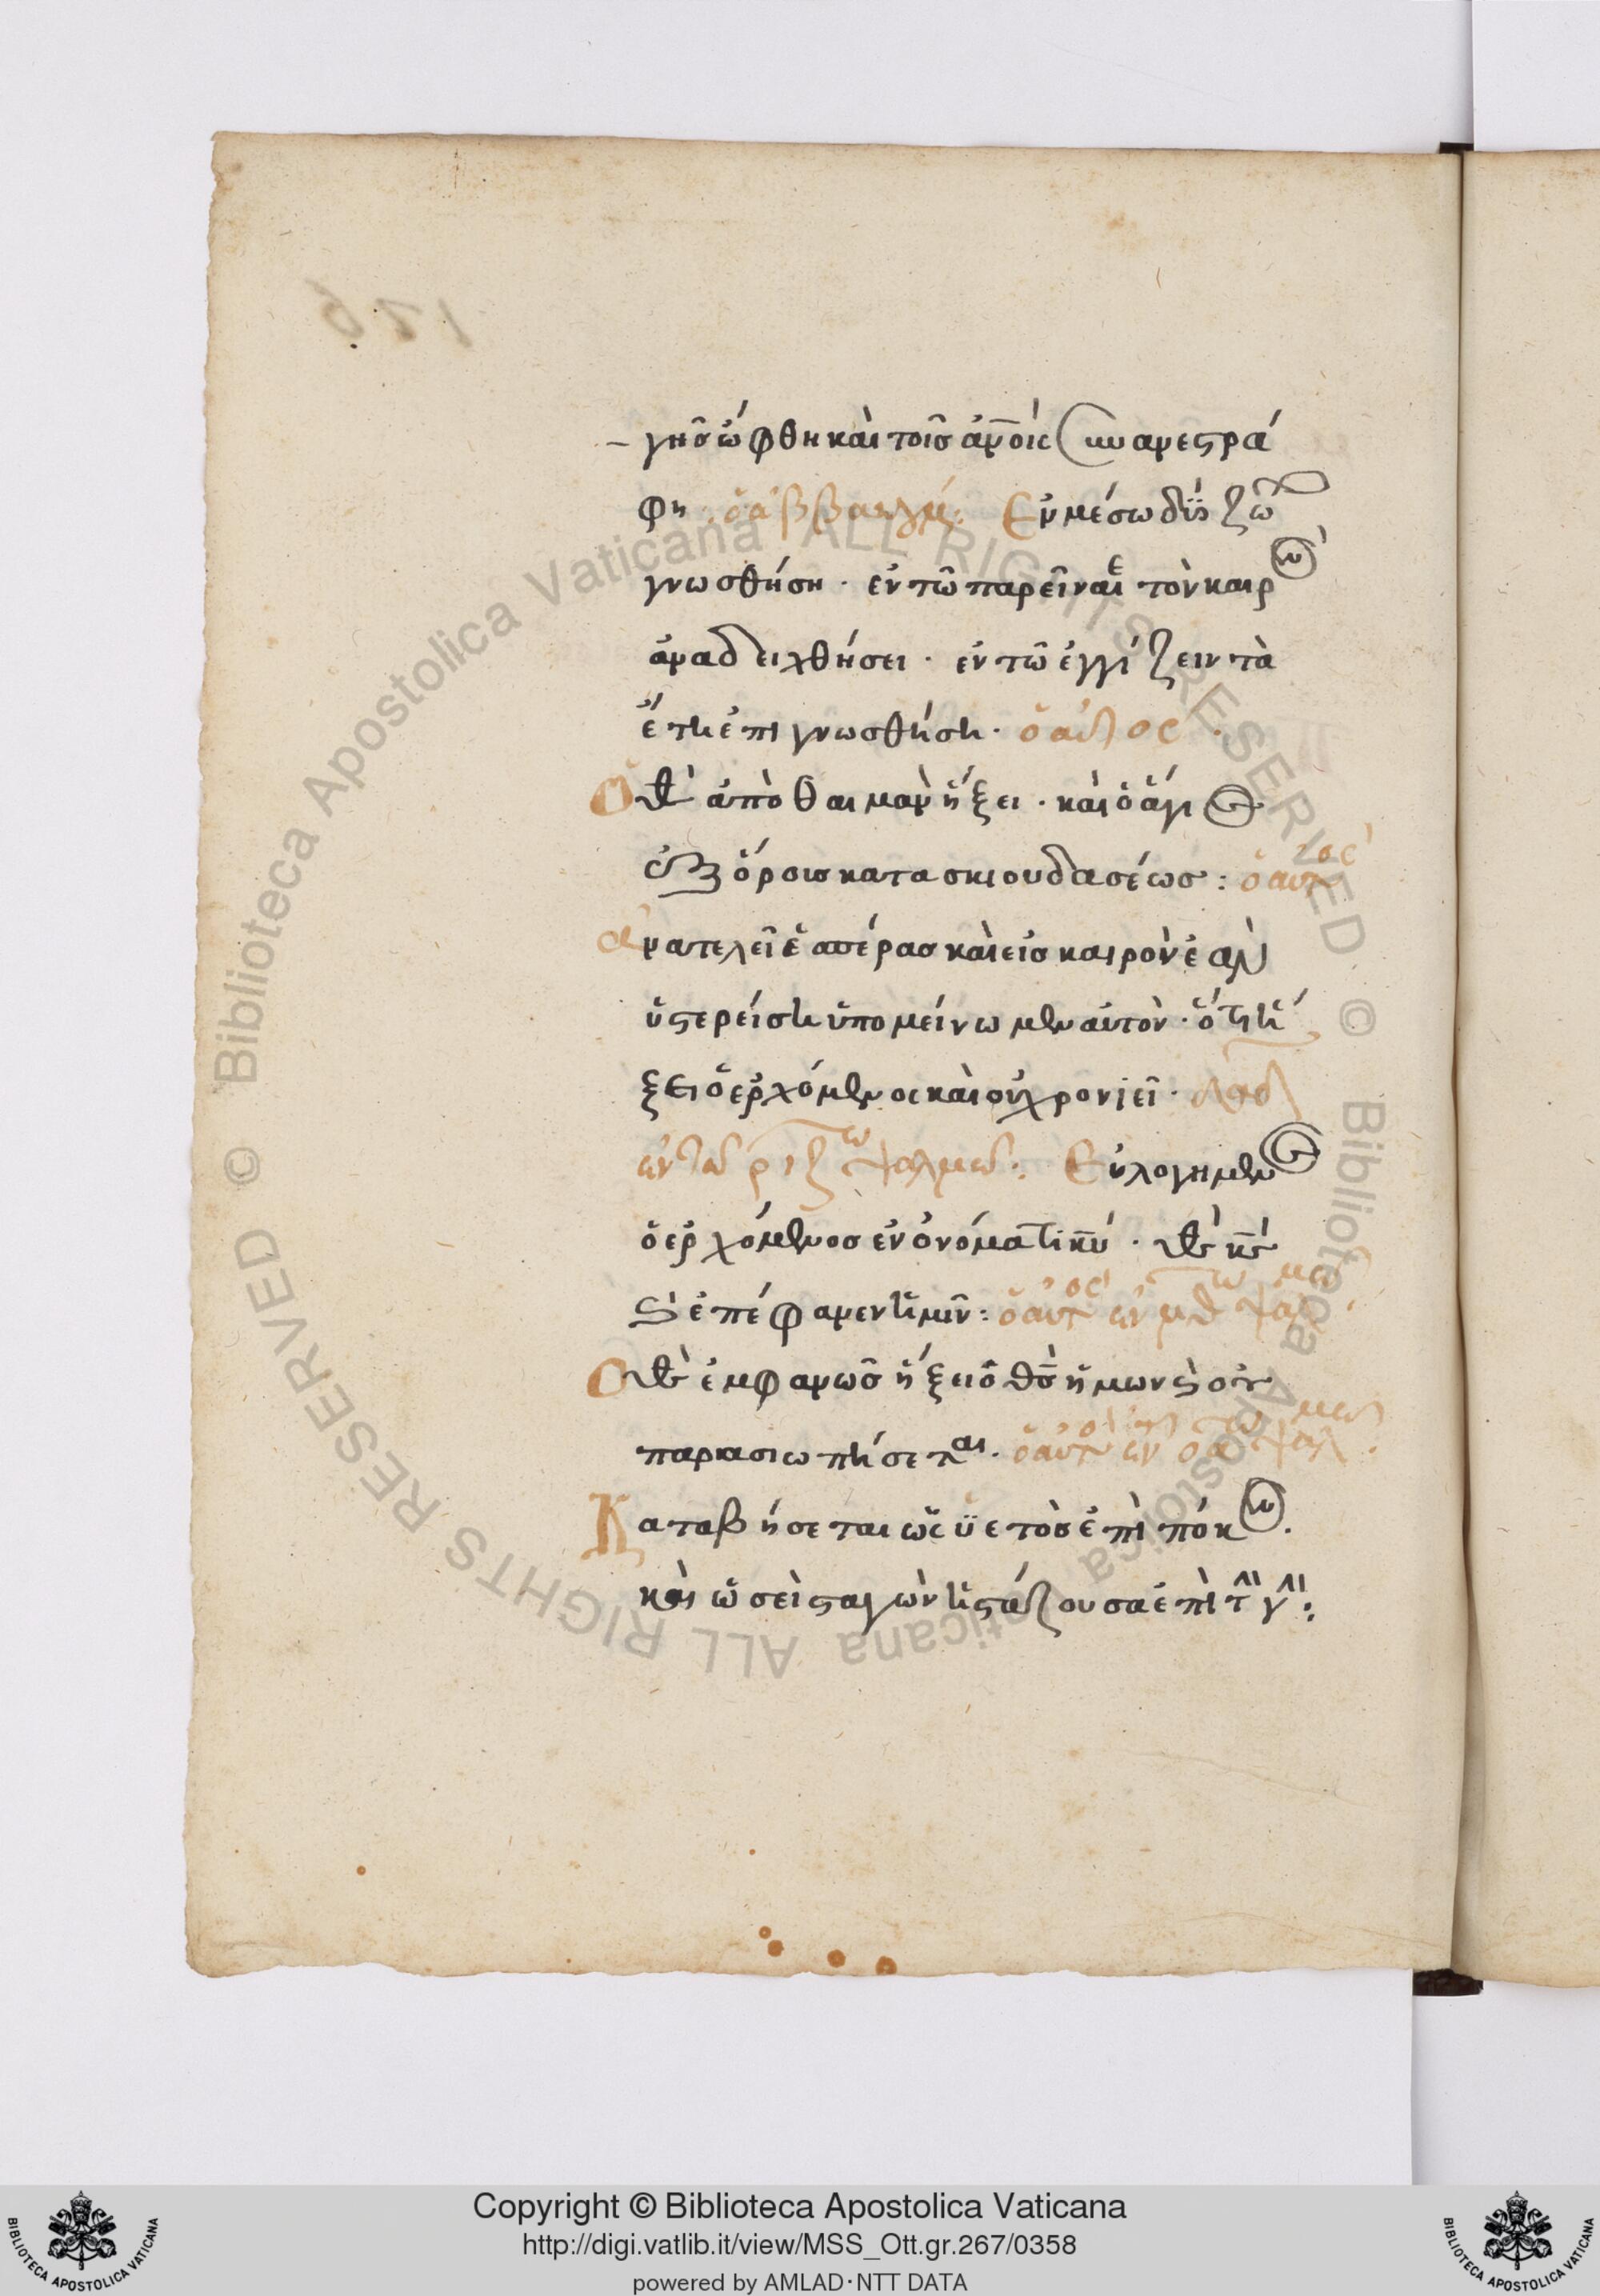 γῆς ὤφθη καὶ τοῖς ἀν̅οις συνανεστρά
φη. ὁ ἀββακούμ: Ἐν μέσω δύο ζώων
γνωσθήση · ἐν τῶ παρεῖναι τὸν καιρὸν
ἀναδειχθήσει · ἐν τῶ ἐγγίζειν τὰ
ἔτη ἐπιγνωσθήση · ὁ αὐτος ·
Ὁ θς̀ ἀπὸ θαιμαν ἥξει · καὶ ὁ ἅγιος
ἐξ ὄρους κατασκιου δασέως : ὁ αὐτος
ἀνατελεῖ ἑσπέρας καὶ εἰς καιρὸν ἐὰν
ὑστερείση ὑπομείνωμεν αὐτὸν · ὅτι ἥ
ξει ὁ ἐρχόμενος καὶ οὐ χρονιεῖ · δαδ
ἐν τῶ ριζ ω ψαλμῶ: Εὐλογημένος
ὁ ἐρχόμενος ἐν ὀνόματι κ̅υ · θς̀ κς̀
καὶ ἐπέφανεν ἡμῖν : ὁ αὐτος ἐν μθ ω ψαλμῶ
Ὁ θς̀ ἐμφανῶς ἥξει ὁ θ̅ς ἡμων καὶ οὐ
παρασιωπήσεται. ὁ αὐτος ἐν οα ω ψαλμῶ.
Καταβήσεται ὡς ὑετὸς ἐπὶ πόκον.
καὶ ὡσεὶ σταγὼν ἡ στάζουσα ἐπὶ τὴν γῆν :
Copyright © Biblioteca Apostolica Vaticana
http://digi.vatlib.it/view/MSS_Ott.gr.267/0358
powered by AMLAD·NTT DATA
BIBLIOTECA APOSTOLICA VATICANA
BIBLIOTECA APOSTOLICA VATICANA
© Biblioteca Apostolica Vaticana ALL RIGHTS RESERVED © Biblioteca Apostolica Vaticana ALL RIGHTS RESERVED